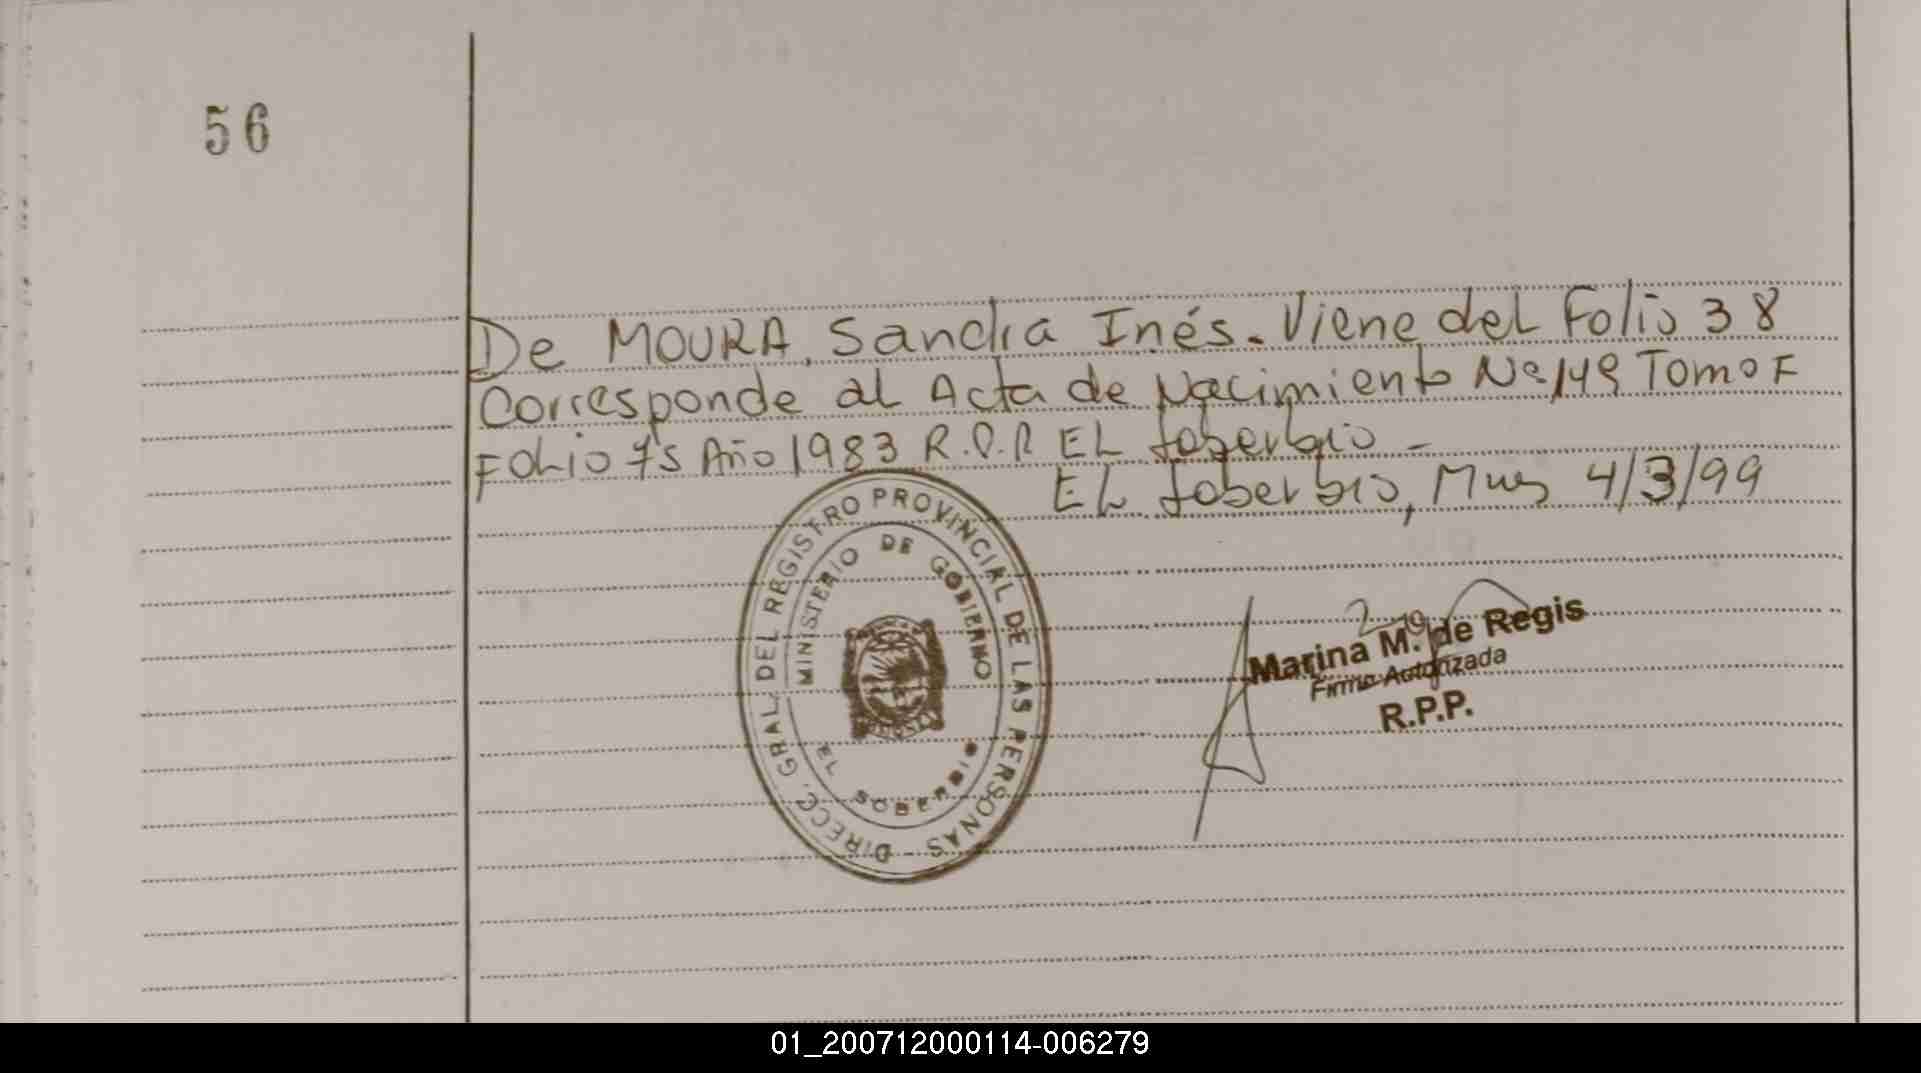 56
De MOURA, Sandra Inés. Viene del Folio 38
Corresponde al Acta de Nacimiento Nº 149 Tomo F
Folio 75 Año 1983 R.P.P. El Soberbio -
El Soberbio, Mnes 4/3/99
DIRECC. GRAL. DEL REGISTRO PROVINCIAL DE LAS PERSONAS -
MINISTERIO DE GOBIERNO
EL SOBERBIO
Marina M. de Regis
Firma Autorizada
R.P.P.
01_200712000114-006279